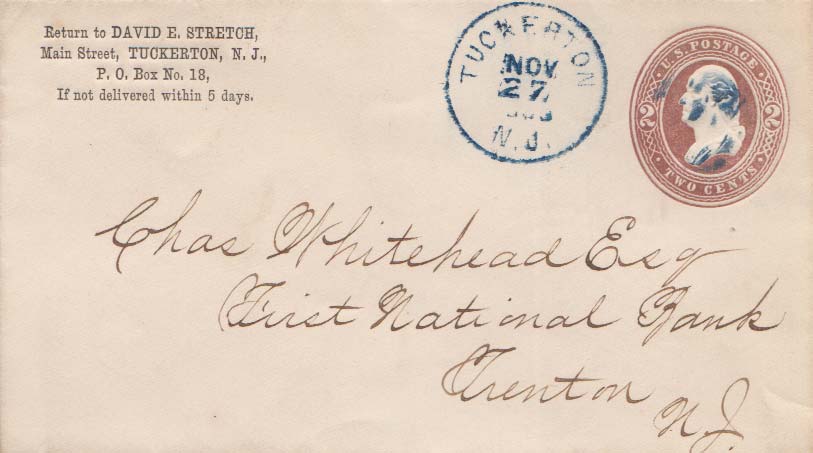 Return to DAVID E. STRETCH,
Main Street, TUCKERTON, N. J.,
P. O. Box No. 18,
If not delivered within 5 days.
TUCKERTON
NOV
27
N.J.
U.S. POSTAGE
2 2
TWO CENTS
Chas Whitehead Esq
First National Bank
Trenton
N.J.